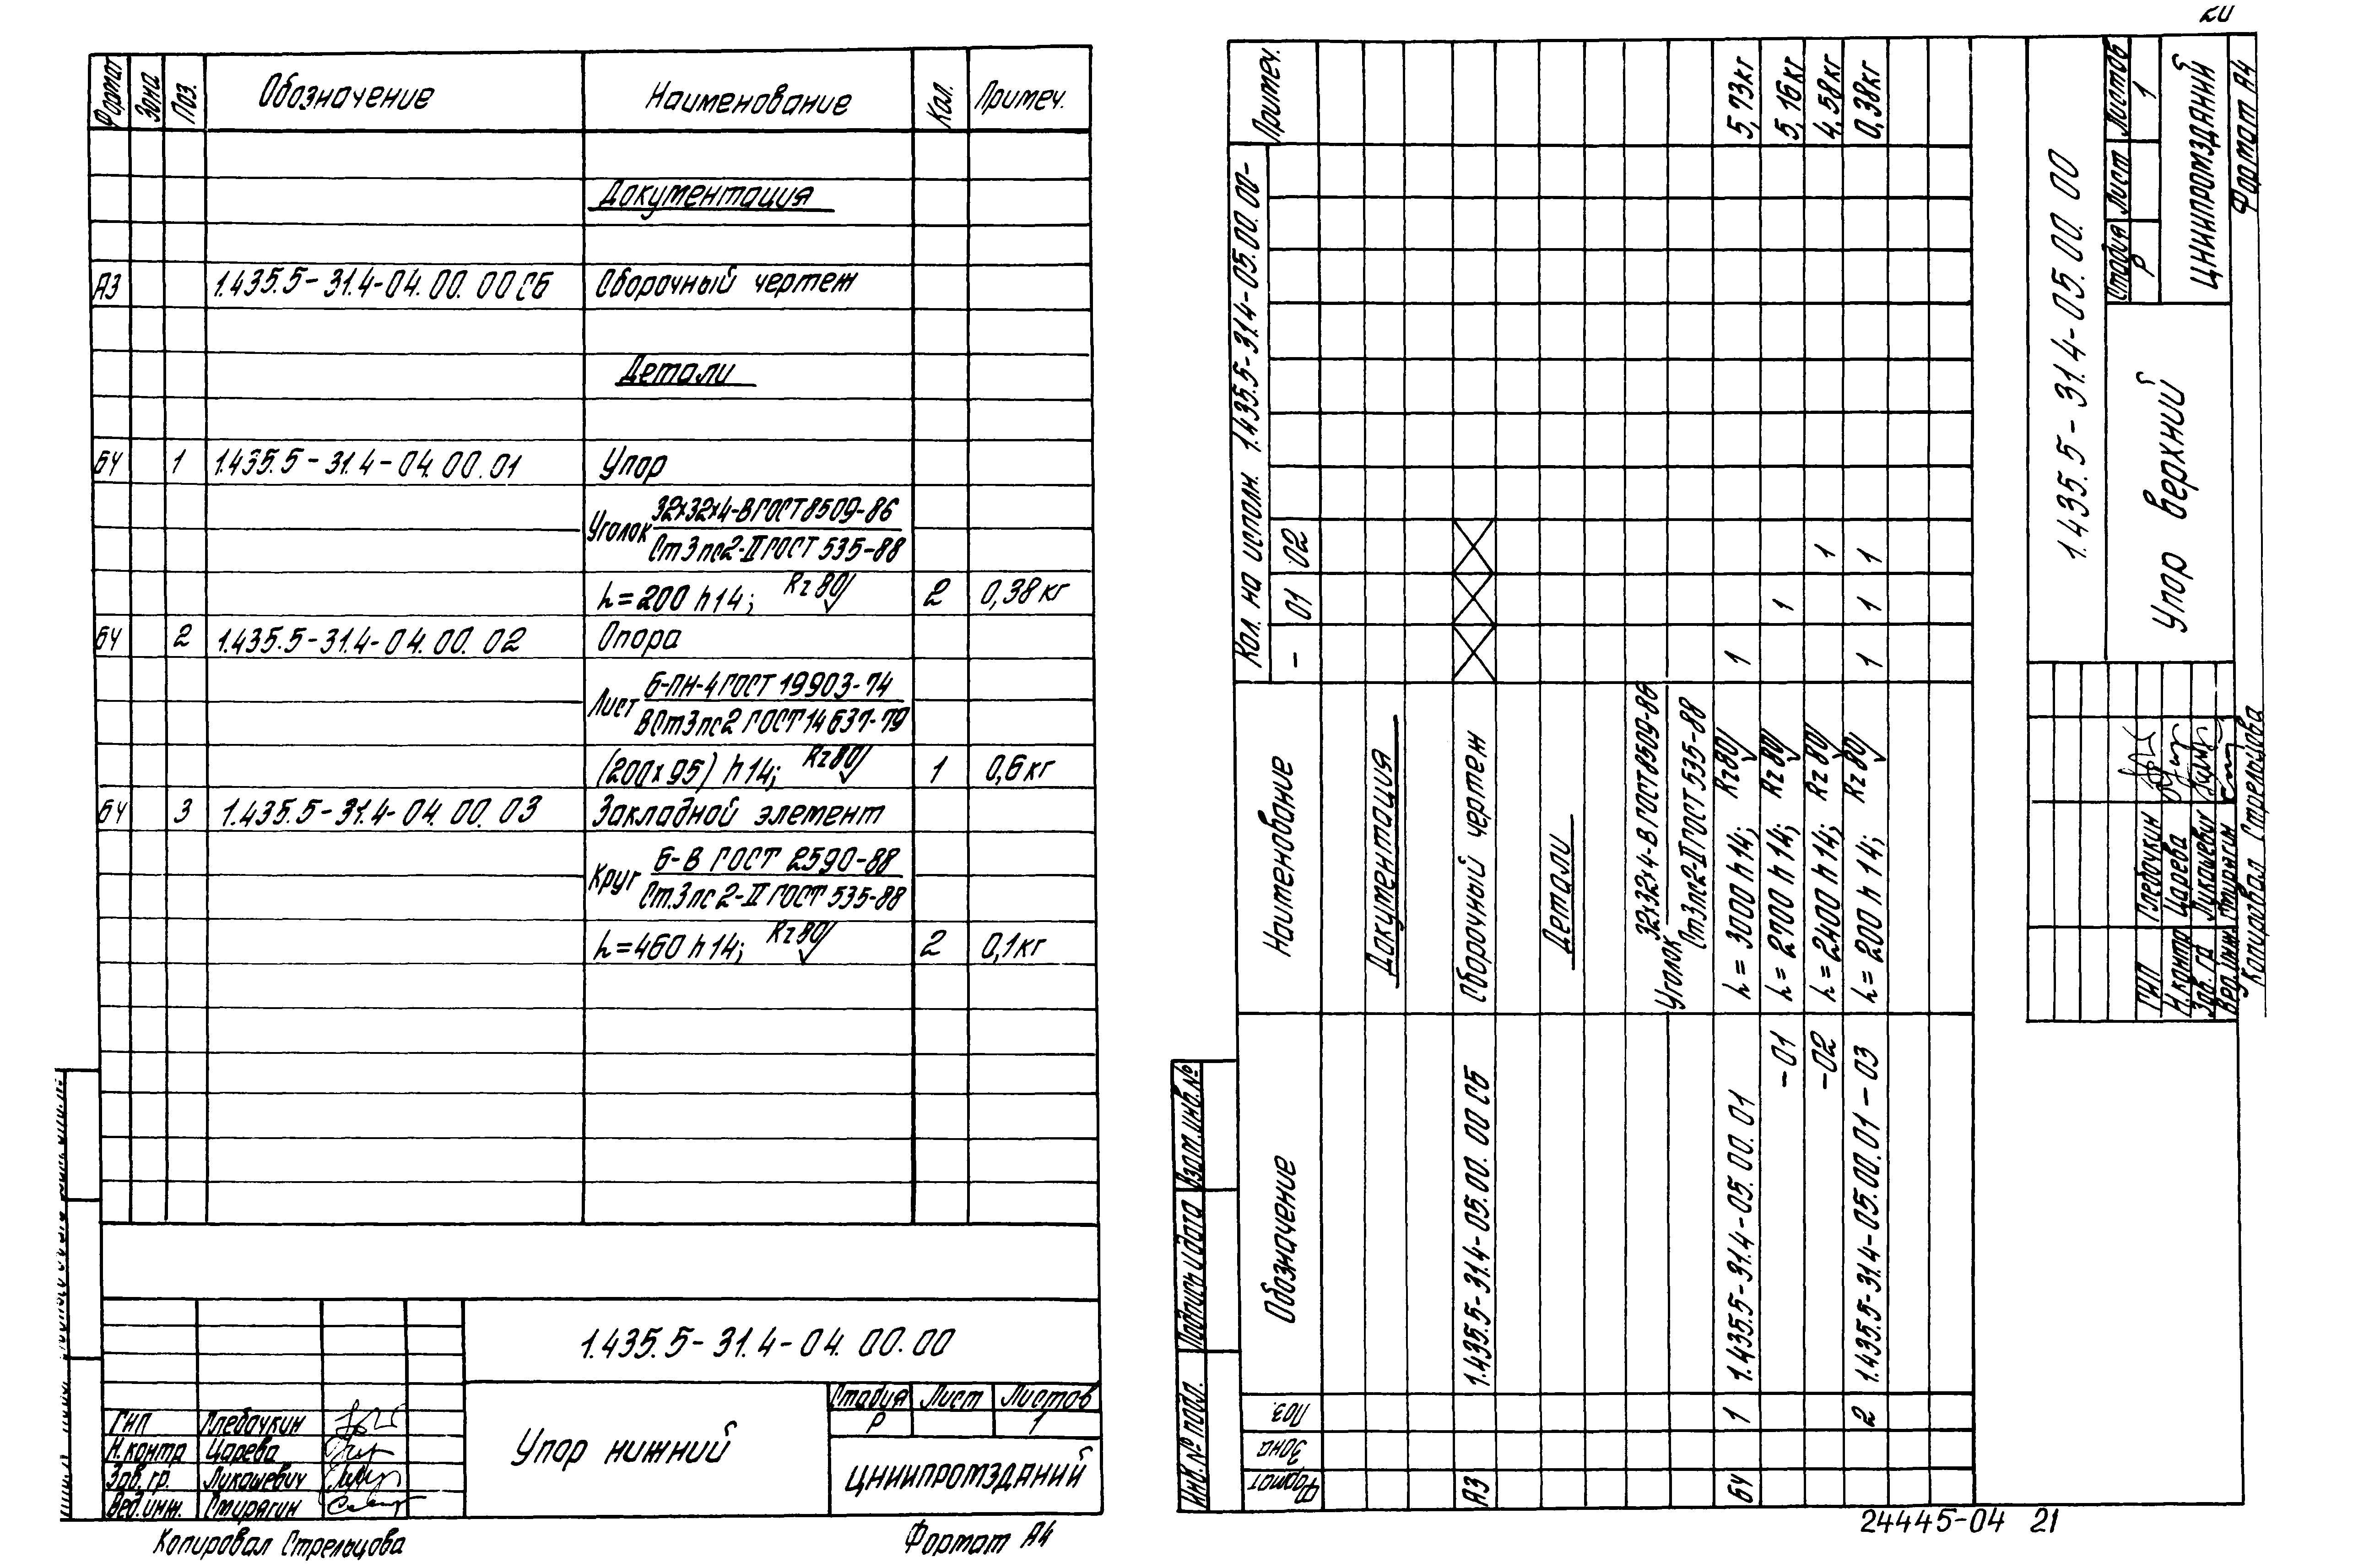 Формат Зона Поз. Обозначение Наименование Кол. Примеч.
Документация
А3 1.435.5-31.4-04.00.00СБ Сборочный чертеж
Детали
БЧ 1 1.435.5-31.4-04.00.01 Упор
32х32х4-В ГОСТ 8509-86
Уголок
Ст3пс2-II ГОСТ 535-88
h=200 h14; Rz80 2 0,38кг
БЧ 2 1.435.5-31.4-04.00.02 Опора
Б-ПН-4 ГОСТ 19903-74
Лист
ВСт3пс2 ГОСТ 14637-79
(200х95) h14; Rz80 1 0,6кг
БЧ 3 1.435.5-31.4-04.00.03 Закладной элемент
6-В ГОСТ 2590-88
Круг
Ст.3пс2-II ГОСТ 535-88
h=460 h14; Rz80 2 0,1кг
1.435.5-31.4-04.00.00
Упор нижний
Стадия Лист Листов
Р 1
ЦНИИПРОМЗДАНИЙ
ГИП Глебочкин
Н.контр Царева
Зав.гр. Лукашевич
Вед.инж. Стирягин
Копировал Стрельцова
Формат А4
Формат Зона Поз. Обозначение Наименование Кол. на исполн. 1.435.5-31.4-05.00.00- Примеч.
- 01 02
Документация
А3 1.435.5-31.4-05.00.00СБ Сборочный чертеж
Детали
32х32х4-В ГОСТ 8509-86
Уголок
Ст3пс2-II ГОСТ 535-88
БЧ 1 1.435.5-31.4-05.00.01 h=3000 h14; Rz80 1 5,73кг
-01 h=2700 h14; Rz80 1 5,16кг
-02 h=2400 h14; Rz80 1 4,58кг
2 1.435.5-31.4-05.00.01-03 h=200 h14; Rz80 1 1 1 0,38кг
1.435.5-31.4-05.00.00
Упор верхний
Стадия Лист Листов
Р 1
ЦНИИПРОМЗДАНИЙ
ГИП Глебочкин
Н.контр Царева
Зав.гр Лукашевич
Вед.инж. Стирягин
Копировал Стрельцова
Формат А4
Инв.№ подл. Подпись и дата Взам.инв.№
24445-04 21